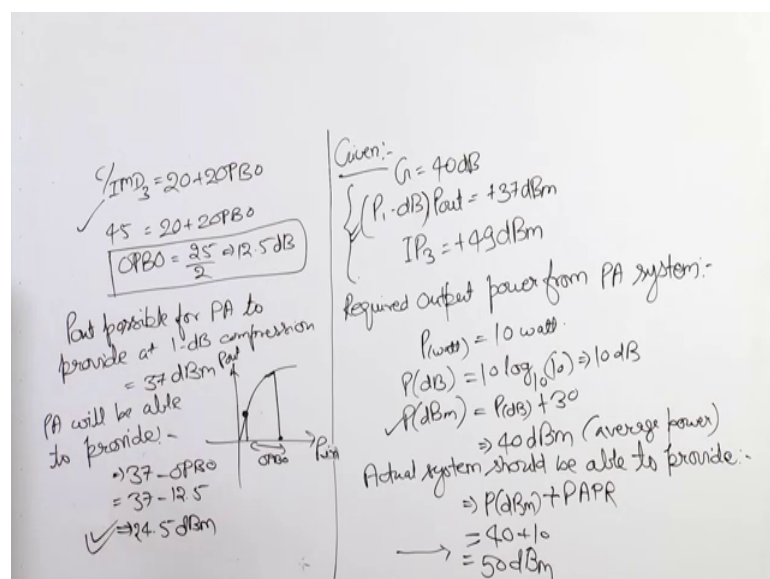 C/IMD3 = 20+2OPBO
45 = 20+2OPBO
OPBO = 25/2 ⇒ 12.5 dB
Pout possible for PA to
provide at 1-dB compression
= 37 dBm
Pout
PA will be able
to provide:-
Pin
OPBO
⇒ 37-OPBO
= 37-12.5
⇒ 24.5 dBm
Given:-
G = 40dB
(P1-dB) Pout = +37dBm
IP3 = +49dBm
Required output power from PA system:-
P(watt) = 10 watt.
P(dB) = 10 log10(10) ⇒ 10 dB
P(dBm) = P(dB) + 30
⇒ 40 dBm (average power)
Actual system should be able to provide:-
⇒ P(dBm) + PAPR
= 40+10
= 50 dBm